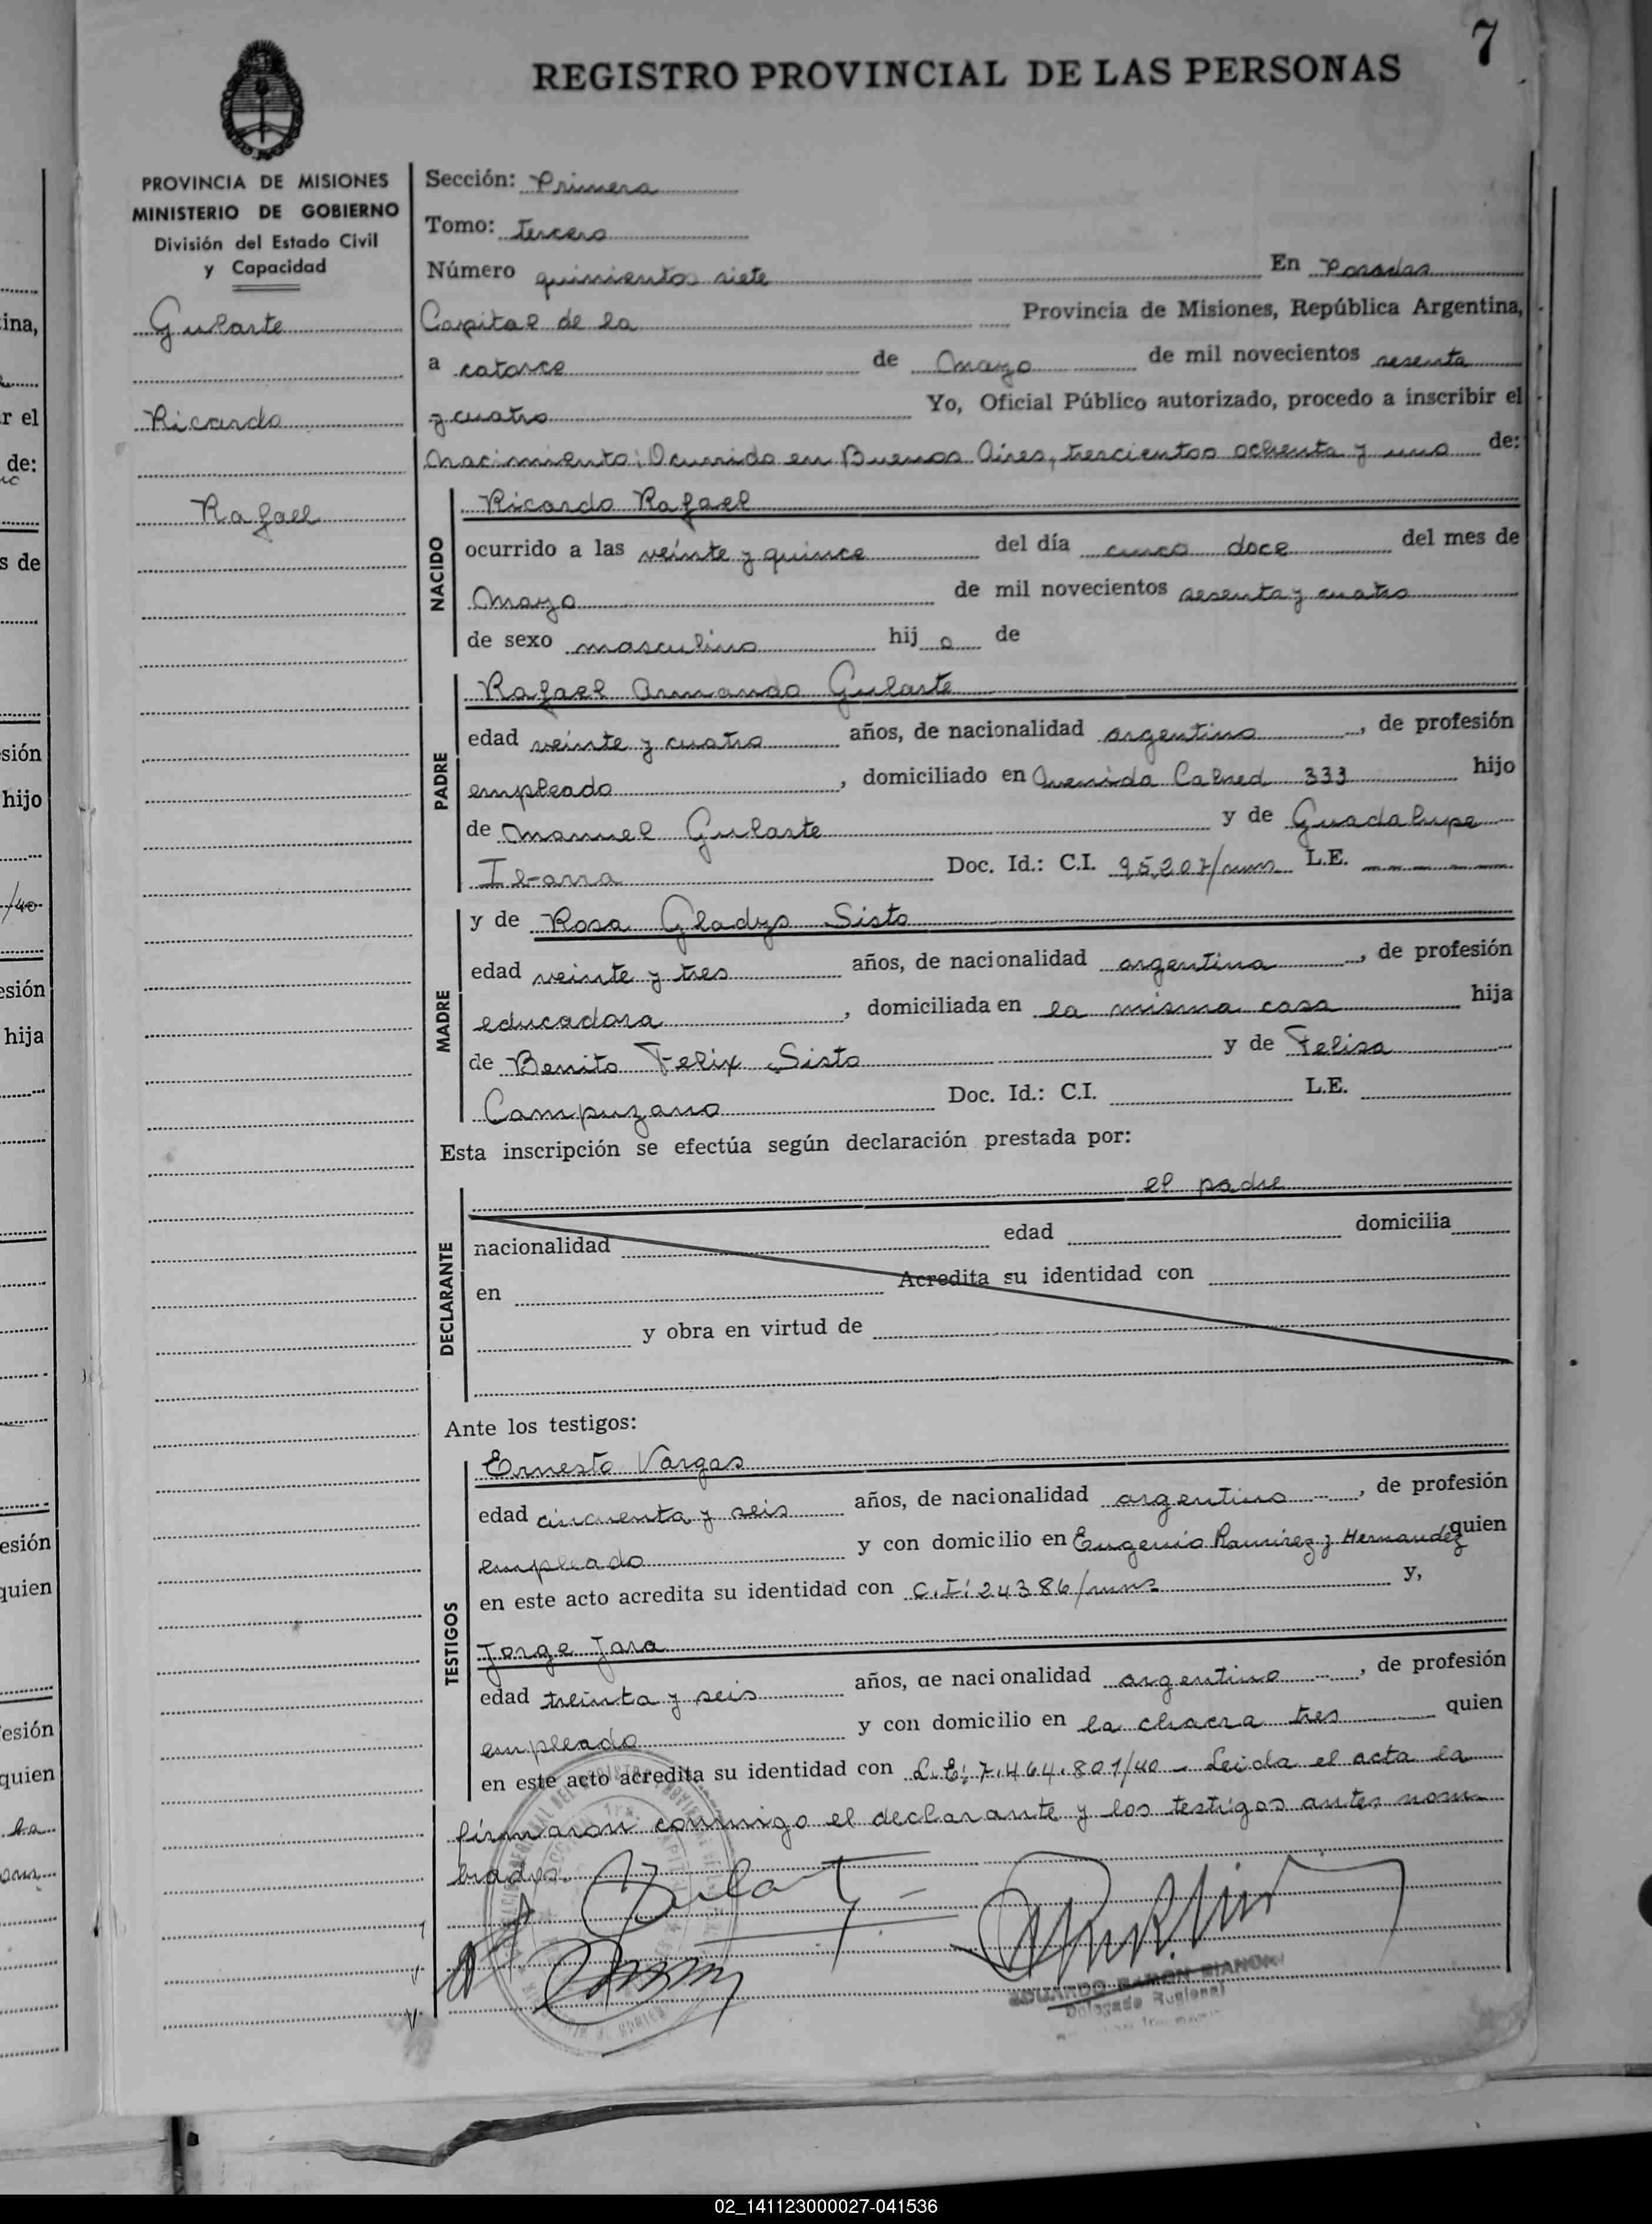 7
REGISTRO PROVINCIAL DE LAS PERSONAS
PROVINCIA DE MISIONES
MINISTERIO DE GOBIERNO
División del Estado Civil
y Capacidad
Gularte
Ricardo
Rafael
Sección: Primera
Tomo: tercero
Número quinientos siete En Posadas
Capital de la Provincia de Misiones, República Argentina,
a catorce de Mayo de mil novecientos sesenta
y cuatro Yo, Oficial Público autorizado, procedo a inscribir el
Nacimiento: Ocurrido en Buenos Aires, trescientos ochenta y uno de:
NACIDO
Ricardo Rafael
ocurrido a las veinte y quince del día cinco doce del mes de
Mayo de mil novecientos sesenta y cuatro
de sexo masculino hij o de
PADRE
Rafael Armando Gularte
edad veinte y cuatro años, de nacionalidad argentino, de profesión
empleado, domiciliado en Avenida Cabred 333 hijo
de Manuel Gularte y de Guadalupe
Ibarra Doc. Id.: C.I. 95,207/mns L.E.
MADRE
y de Rosa Gladys Sisto
edad veinte y tres años, de nacionalidad argentina, de profesión
educadora, domiciliada en la misma casa hija
de Benito Felix Sisto y de Felisa
Campuzano Doc. Id.: C.I. L.E.
Esta inscripción se efectúa según declaración prestada por:
DECLARANTE
el padre
nacionalidad edad domicilia
en Acredita su identidad con
y obra en virtud de
Ante los testigos:
TESTIGOS
Ernesto Vargas
edad cincuenta y seis años, de nacionalidad argentino, de profesión
empleado y con domicilio en Eugenio Ramirez y Hernandez quien
en este acto acredita su identidad con C.I: 24386/mns y,
Jorge Jara
edad treinta y seis años, de nacionalidad argentino, de profesión
empleado y con domicilio en la chacra tres quien
en este acto acredita su identidad con L.E: 7.464.801/40 - Leida el acta la
firmaron conmigo el declarante y los testigos antes nom-
brados.
Gularte
EDUARDO RAMON BIANCHI
Delegado Regional
02_141123000027-041536